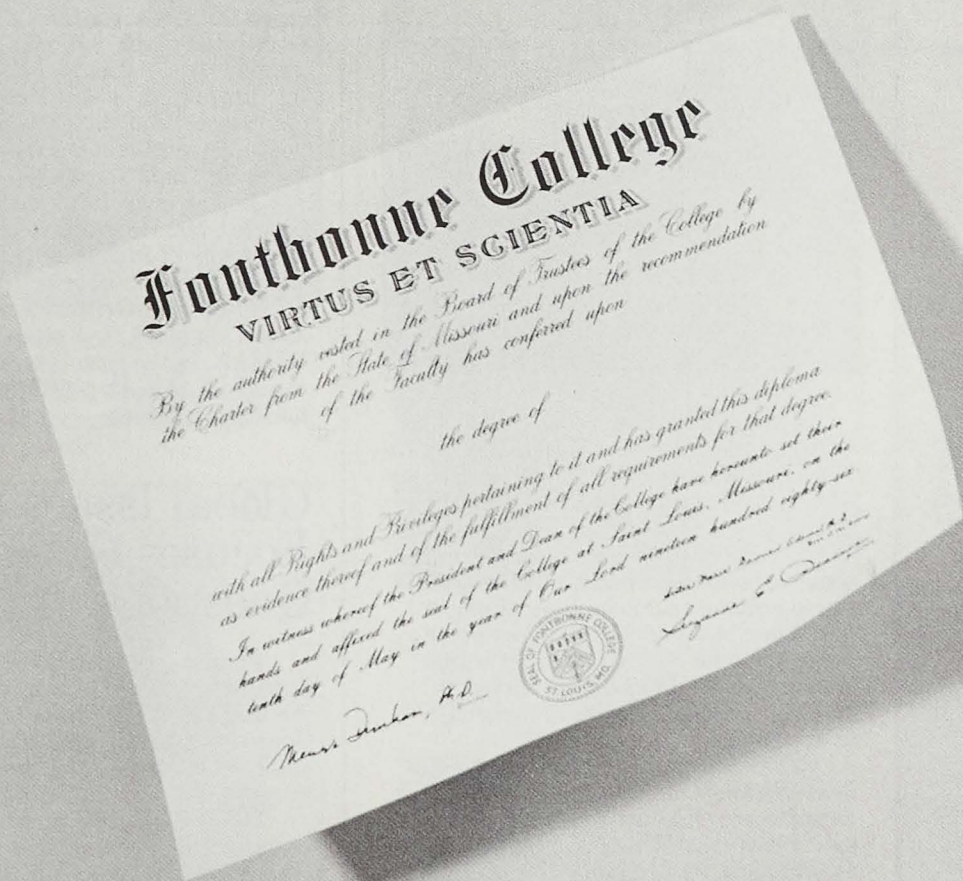 Fontbonne College
VIRTUS ET SCIENTIA
By the authority vested in the Board of Trustees of the College by
the Charter from the State of Missouri and upon the recommendation
of the Faculty has conferred upon
the degree of
with all Rights and Privileges pertaining to it and has granted this diploma
as evidence thereof and of the fulfillment of all requirements for that degree.
In witness whereof the President and Dean of the College have hereunto set their
hands and affixed the seal of the College at Saint Louis, Missouri, on the
tenth day of May in the year of Our Lord nineteen hundred eighty-six
SEAL OF FONTBONNE COLLEGE
ST LOUIS, MO.
Ph.D.